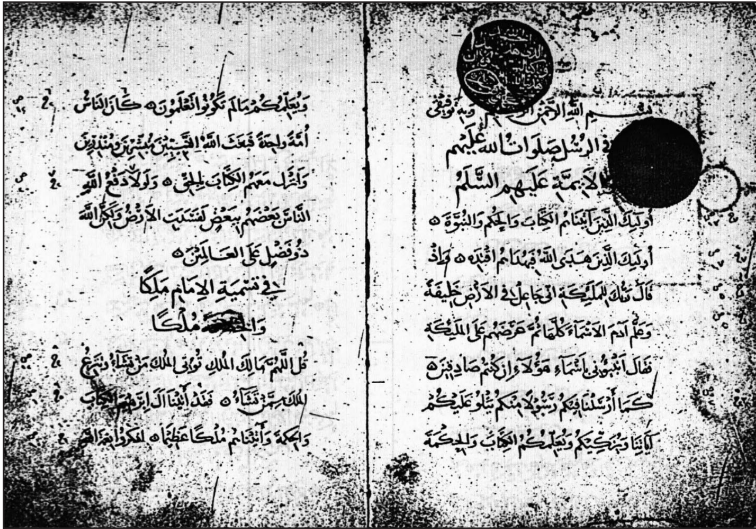 بسم الله الرحمن وبه توفيقي
في الرسل صلوات الله عليهم
والايمة عليهم السلم
أوليك الذين اتيناهم الكتاب والحكم والنبوة
أوليك الذين هدى الله فبهداهم اقتده واذ
قال ربك للمليكة اني جاعل في الارض خليفة
وعلم آدم الاسماء كلها ثم عرضهم على المليكة
فقال انبئوني باسماء هؤلاء ان كنتم صادقين
كما أرسلنا فيكم رسولا منكم يتلو عليكم
آياتنا ويزكيكم ويعلمكم الكتاب والحكمة
ويعلمكم ما لم تكونوا تعلمون كان الناس
أمة واحدة فبعث الله النبيين مبشرين ومنذرين
وانزل معهم الكتاب بالحق ولولا دفع الله
الناس بعضهم ببعض لفسدت الارض ولكن الله
ذو فضل على العالمين
في تسمية الامام ملكا
ملكا
قل اللهم مالك الملك توتي الملك من تشاء وتنزع
الملك ممن تشاء فقد آتينا آل ابرهيم الكتاب
والحكمة وآتيناهم ملكا عظيما